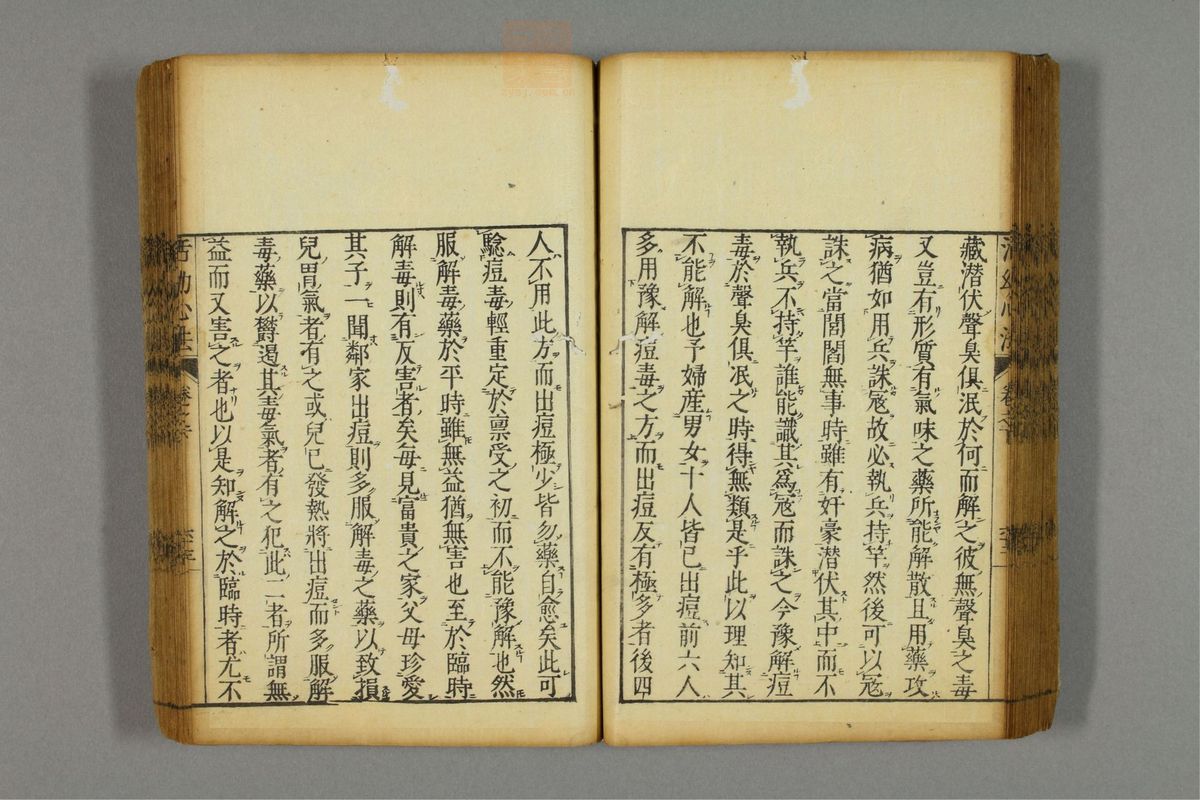 藏潜伏聲臭俱泯於何而解之彼無聲臭之毒
又豈有形質有氣味之藥所能解散且用藥攻
病猶如用兵誅冦故必執兵持竿然後可以冦
誅之當閭閻無事時雖有奸豪潜伏其中而不
執兵不持竿誰能識其爲冦而誅之今豫解痘
毒於聲臭俱泯之時得無類是乎此以理知其
不能解也予婦産男女十人皆已出痘前六人
多用豫解痘毒之方而出痘反有極多者後四
人不用此方而出痘極少皆勿藥自愈矣此可
驗痘毒輕重定於禀受之初而不能豫解也然
服解毒藥於平時雖無益猶無害也至於臨時
解毒則有反害者矣毎見富貴之家父母珍愛
其子一聞鄰家出痘則多服解毒之藥以致損
兒胃氣者有之或兒已發熱將出痘而多服解
毒藥以欝遏其毒氣者有之犯此二者所謂無
益而又害之者也以是知解之於臨時者尤不
活幼心法